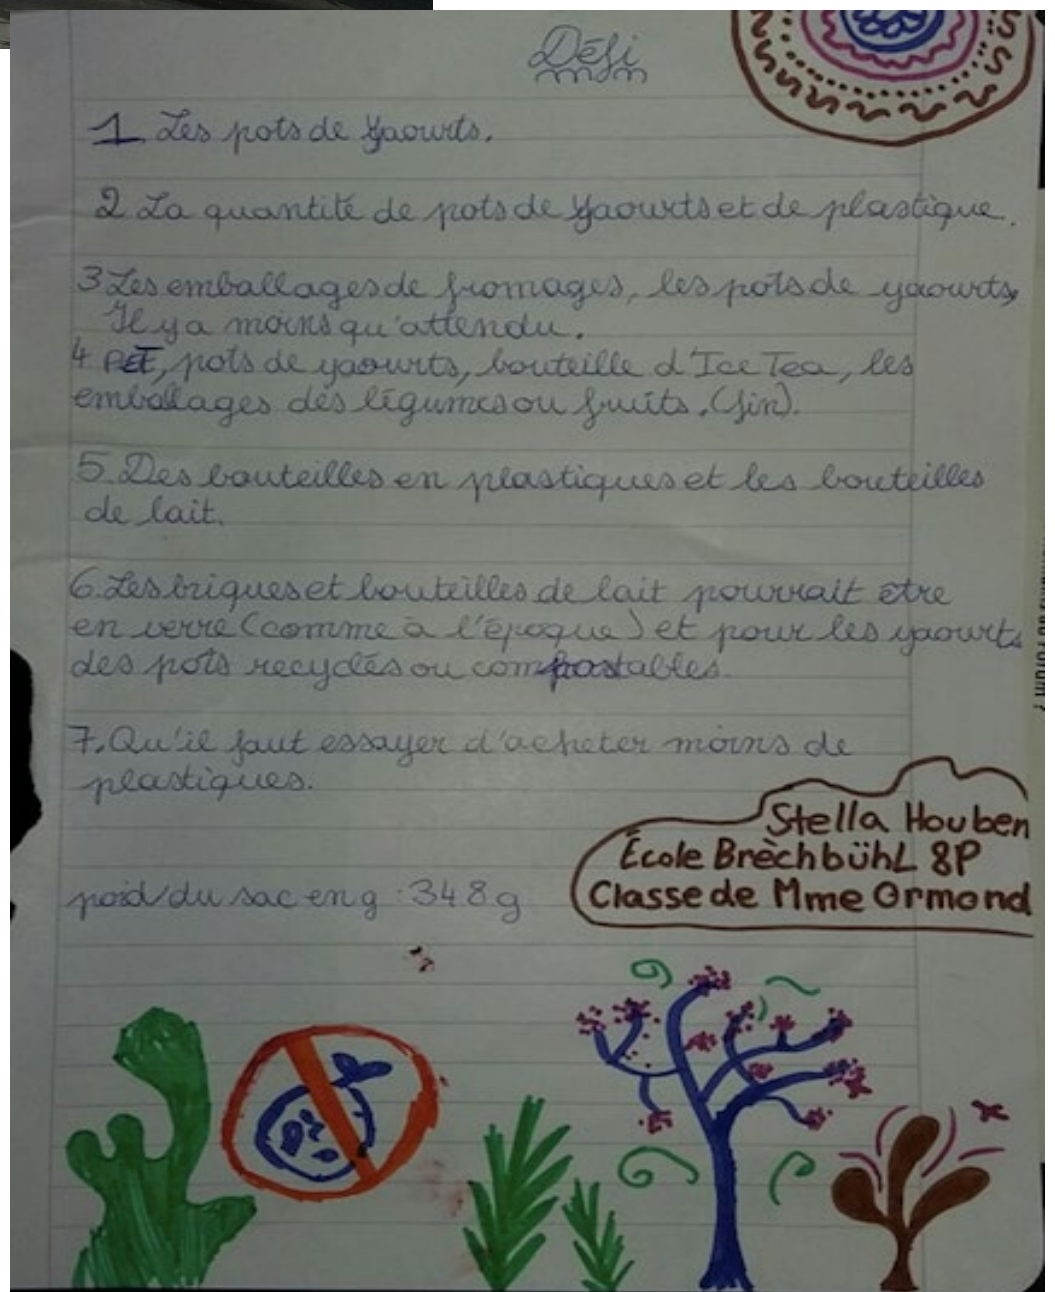 Défi
1. Les pots de Yaourts.
2 La quantité de pots de Yaourts et de plastique.
3 Les emballages de fromages, les pots de yaourts,
Il y a moins qu'attendu.
4 PET, pots de yaourts, bouteille d'Ice Tea, les
emballages des légumes ou fruits. (fin).
5. Des bouteilles en plastiques et les bouteilles
de lait.
6. Les briques et bouteilles de lait pourrait être
en verre (comme à l'époque) et pour les yaourts
des pots recyclés ou compostables.
7. Qu'il faut essayer d'acheter moins de
plastiques.
Stella Houben
École Brèchbühl 8P
Classe de Mme Ormond
poid du sac en g : 348 g